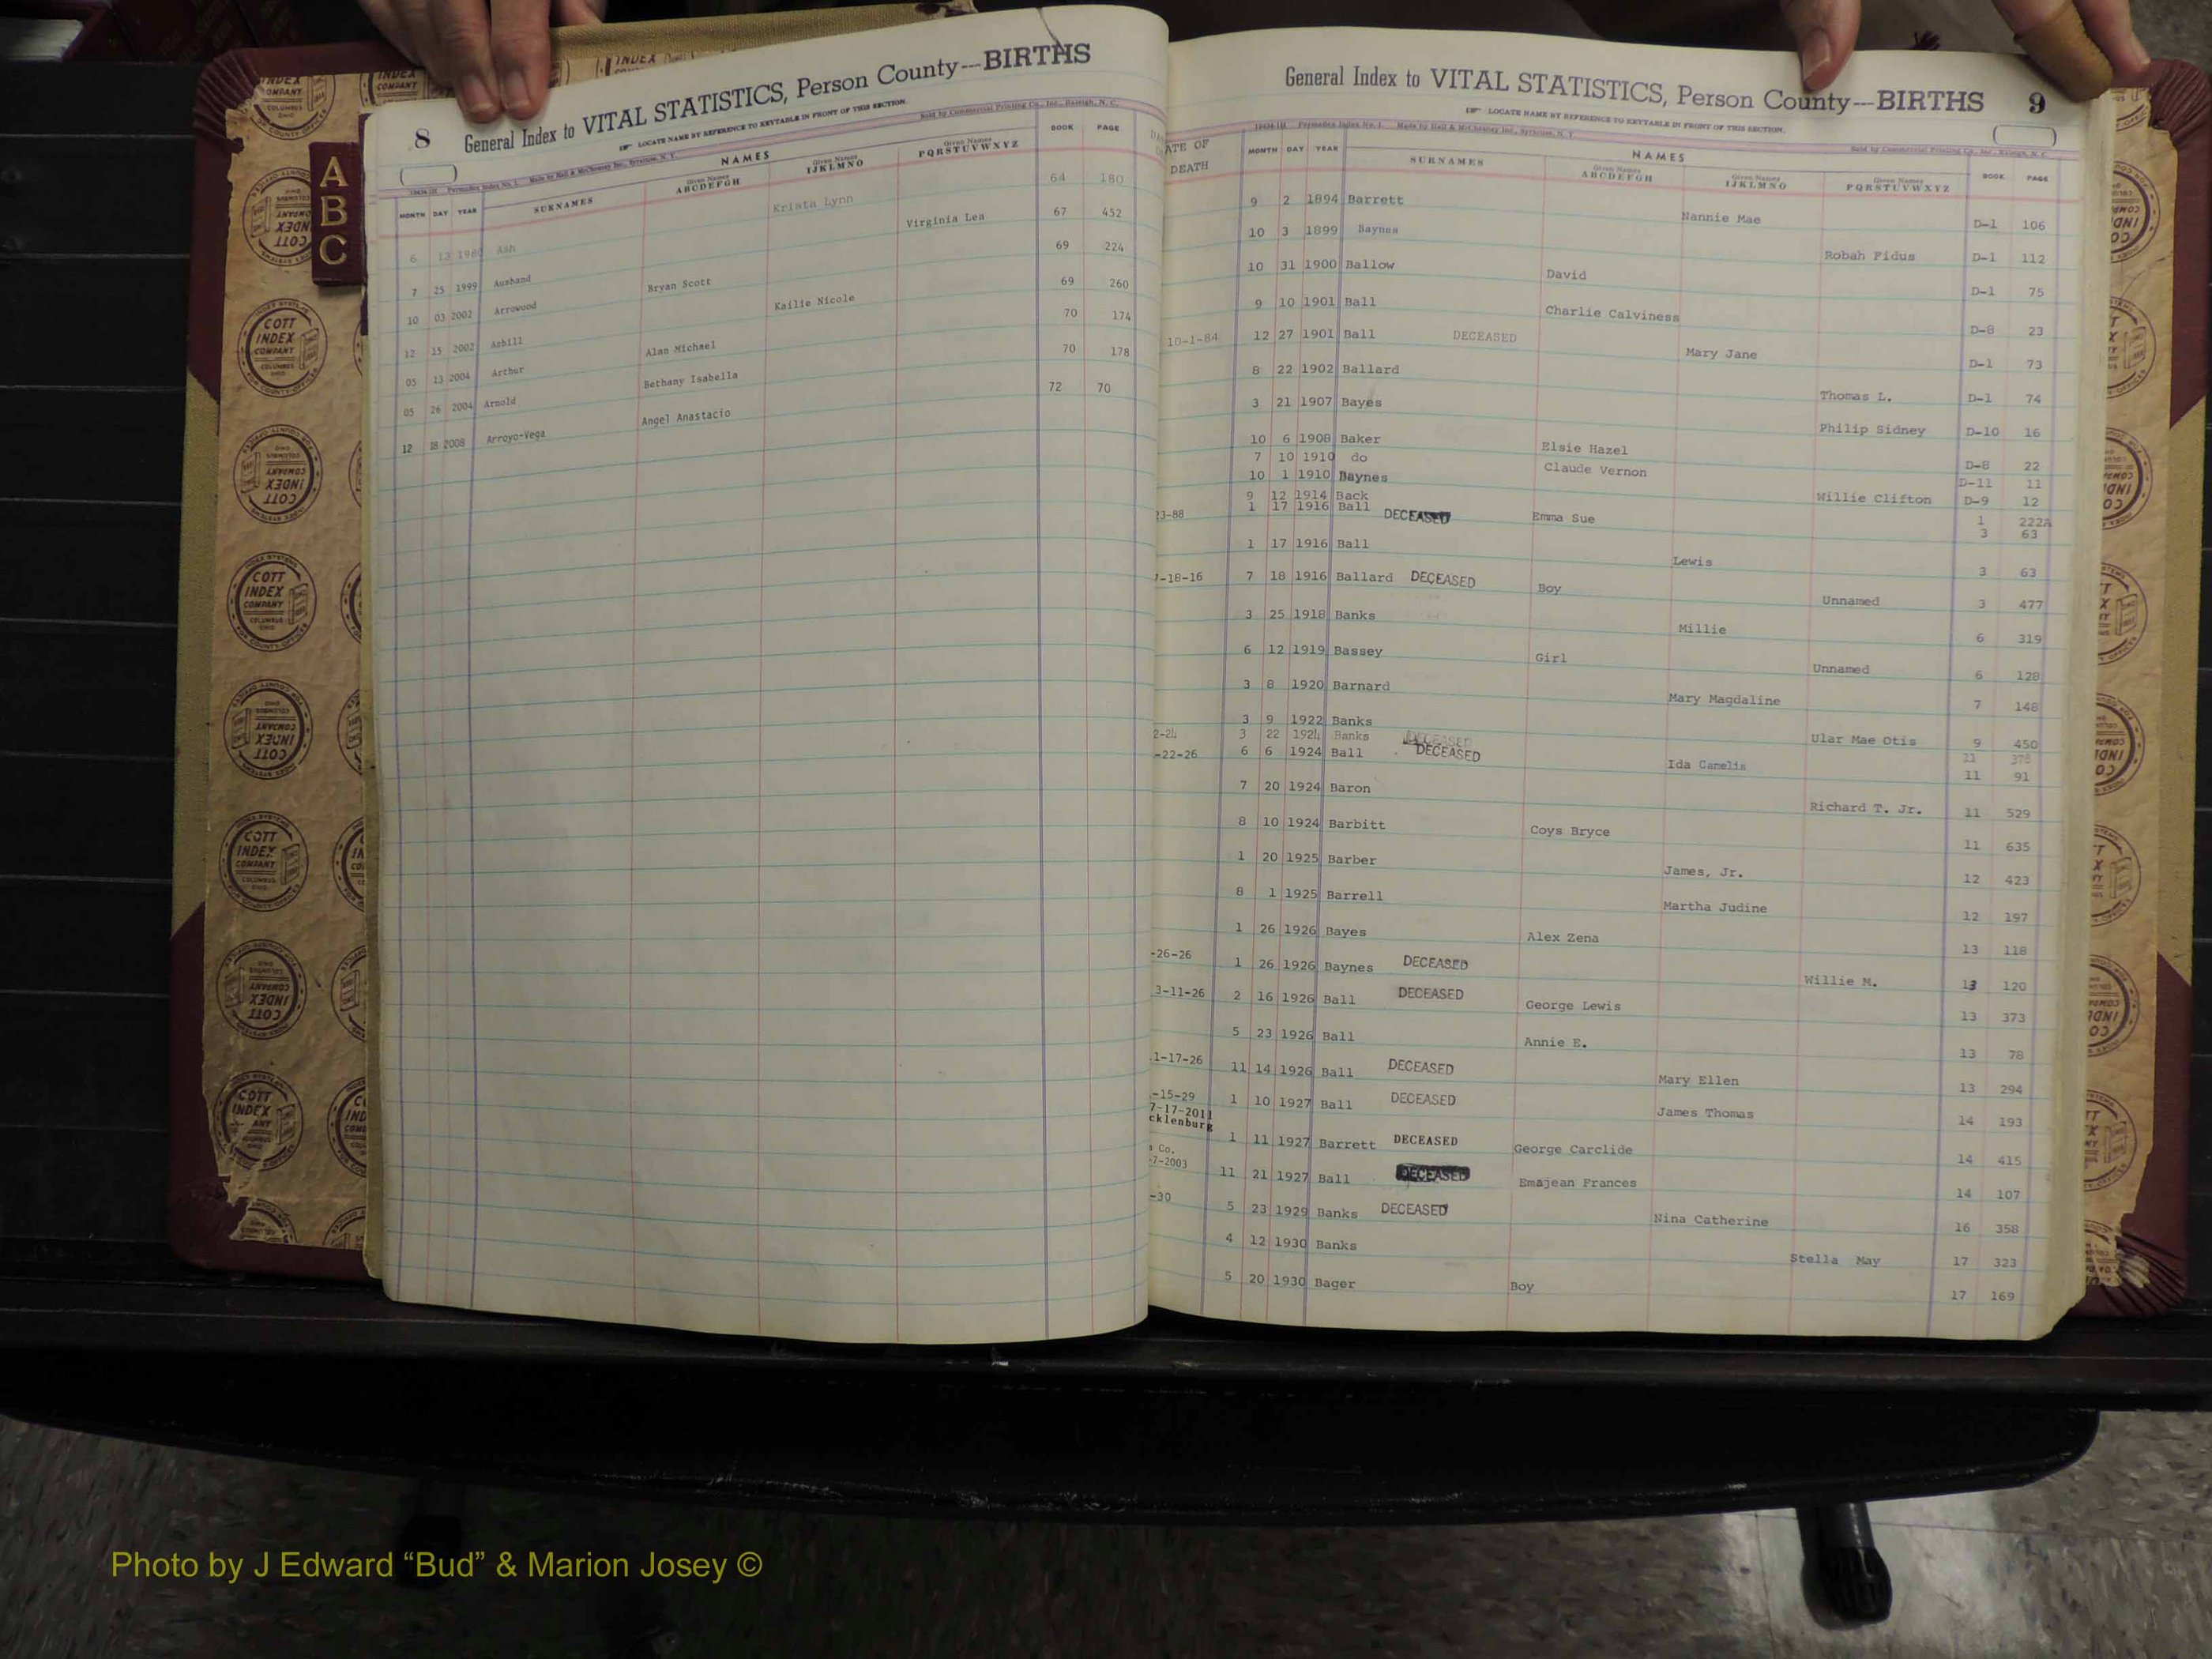 8 General Index to VITAL STATISTICS, Person County---BIRTHS
LOCATE NAME BY REFERENCE TO KEYTABLE IN FRONT OF THIS SECTION.
Sold by Commercial Printing Co., Inc., Raleigh, N. C.
Permadex Index No. 1. Made by Hall & McChesney Inc., Syracuse, N. Y.
NAMES
MONTH DAY YEAR SURNAMES Given Names ABCDEFGH Given Names IJKLMNO Given Names PQRSTUVWXYZ BOOK PAGE
6 13 Ash Krista Lynn 64 180
7 25 1999 Ausband Virginia Lea 67 452
10 03 2002 Arrowood Bryan Scott 69 224
12 15 2002 Azbill Kailie Nicole 69 260
05 13 2004 Arthur Alan Michael 70 174
05 26 2004 Arnold Bethany Isabella 70 178
12 18 2008 Arroyo-Vega Angel Anastacio 72 70
A
B
C
General Index to VITAL STATISTICS, Person County---BIRTHS 9
LOCATE NAME BY REFERENCE TO KEYTABLE IN FRONT OF THIS SECTION.
Permadex Index No. 1. Made by Hall & McChesney Inc., Syracuse, N. Y.
Sold by Commercial Printing Co., Inc., Raleigh, N. C.
NAMES
DEATH MONTH DAY YEAR SURNAMES Given Names ABCDEFGH Given Names IJKLMNO Given Names PQRSTUVWXYZ BOOK PAGE
9 2 1894 Barrett Nannie Mae D-1 106
10 3 1899 Baynes Robah Fidus D-1 112
10 31 1900 Ballow David D-1 75
9 10 1901 Ball Charlie Calviness D-8 23
10-1-84 12 27 1901 Ball DECEASED Mary Jane D-1 73
8 22 1902 Ballard Thomas L. D-1 74
3 21 1907 Bayes Philip Sidney D-10 16
10 6 1908 Baker Elsie Hazel D-8 22
7 10 1910 do Claude Vernon D-11 11
10 1 1910 Baynes Willie Clifton D-9 12
9 12 1914 Back Emma Sue 1 222A
23-88 1 17 1916 Ball DECEASED 3 63
1 17 1916 Ball Lewis 3 63
-18-16 7 18 1916 Ballard DECEASED Boy Unnamed 3 477
3 25 1918 Banks Millie 6 319
6 12 1919 Bassey Girl Unnamed 6 128
3 8 1920 Barnard Mary Magdaline 7 148
3 9 1922 Banks Ular Mae Otis 9 450
2-24 3 22 1924 Banks DECEASED 11
-22-26 6 6 1924 Ball DECEASED Ida Camelia 11 91
7 20 1924 Baron Richard T. Jr. 11 529
8 10 1924 Barbitt Coys Bryce 11 635
1 20 1925 Barber James, Jr. 12 423
8 1 1925 Barrell Martha Judine 12 197
1 26 1926 Bayes Alex Zena 13 118
-26-26 1 26 1926 Baynes DECEASED Willie M. 13 120
3-11-26 2 16 1926 Ball DECEASED George Lewis 13 373
5 23 1926 Ball Annie E. 13 78
1-17-26 11 14 1926 Ball DECEASED Mary Ellen 13 294
-15-29 1 10 1927 Ball DECEASED James Thomas 14 193
7-17-2011
cklenburg 1 11 1927 Barrett DECEASED George Carclide 14 415
Co.
-7-2003 11 21 1927 Ball DECEASED Emajean Frances 14 107
-30 5 23 1929 Banks DECEASED Nina Catherine 16 358
4 12 1930 Banks Stella May 17 323
5 20 1930 Bager Boy 17 169
COTT INDEX COMPANY COLUMBUS OHIO
Photo by J Edward “Bud” & Marion Josey ©